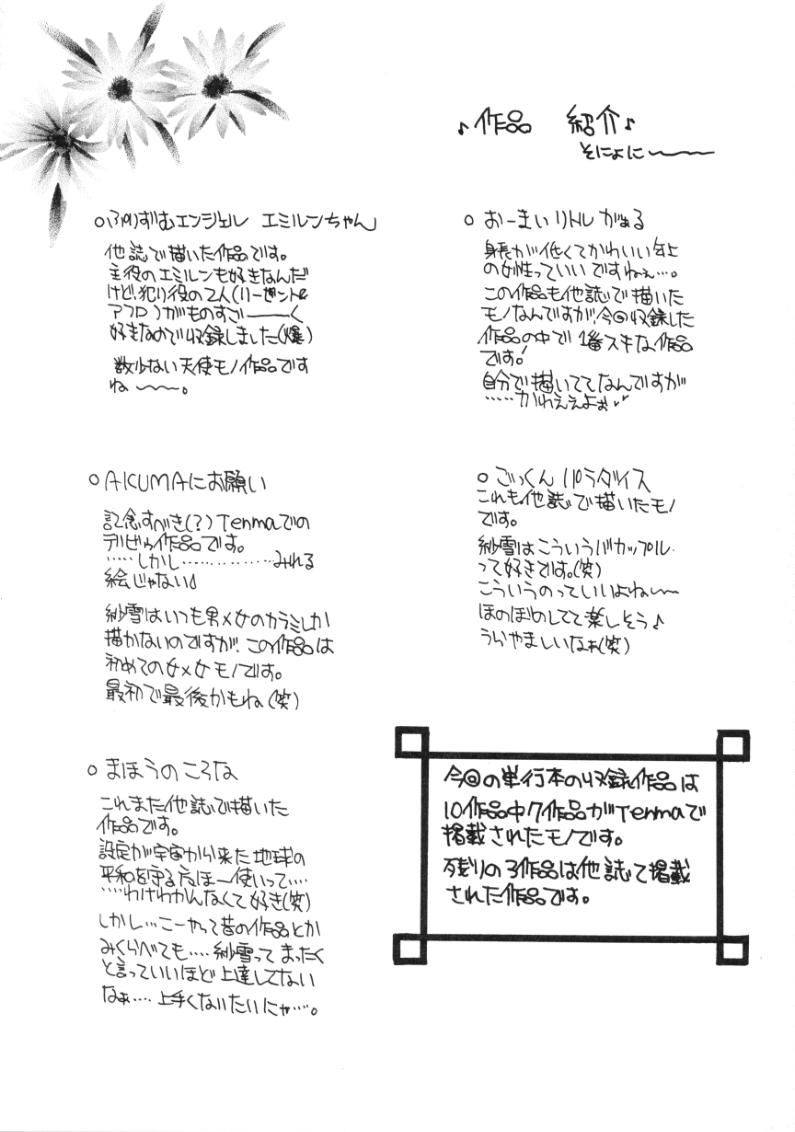 ♪作品 紹介♪
そにょに〜〜
○ぷりずむエンジェル エミルンちゃん
他誌で描いた作品です。
主役のエミルンも好きなんだ
けど、犯り役の2人(リーゼントと
アフロ)がものすご――く
好きなので収録しました(爆)
数少ない天使モノ作品です
ね〜〜。
○AKUMAにお願い
記念すべき(?)Tenmaでの
デビゥ作品です。
……しかし……………みれる
絵じゃない
紗雪はいつも男×女のカラミしか
描かないのですが、この作品は
初めての女×女モノです。
最初で最後かもね(笑)
○まほうのころな
これまた他誌で描いた
作品です。
設定が宇宙から来た地球の
平和を守る魔ほー使いって‥‥
‥‥わけわかんなくて好き(笑)
しかし…こーやって昔の作品とか
みくらべても‥‥紗雪ってまったく
と言っていいほど上達してない
なぁ‥‥上手くないたいにゃ‥‥。
○おーまいリトルがぁる
身長が低くてかわいい年上
の女性っていいですねぇ…。
この作品も他誌で描いた
モノなんですが、今回収録した
作品の中で1番スキな作品
です!
自分で描いててなんですが
‥‥‥かわええよぉ
○ごっくんパラダイス
これも他誌で描いたモノ
です。
紗雪はこういうバカップル
って好きです。(笑)
こういうのっていいよね〜〜
ほのぼのしてて楽しそう♪
うらやましいなぁ(笑)
今回の単行本の収録作品は
10作品中7作品がTenmaで
掲載されたモノです。
残りの3作品は他誌で掲載
された作品です。